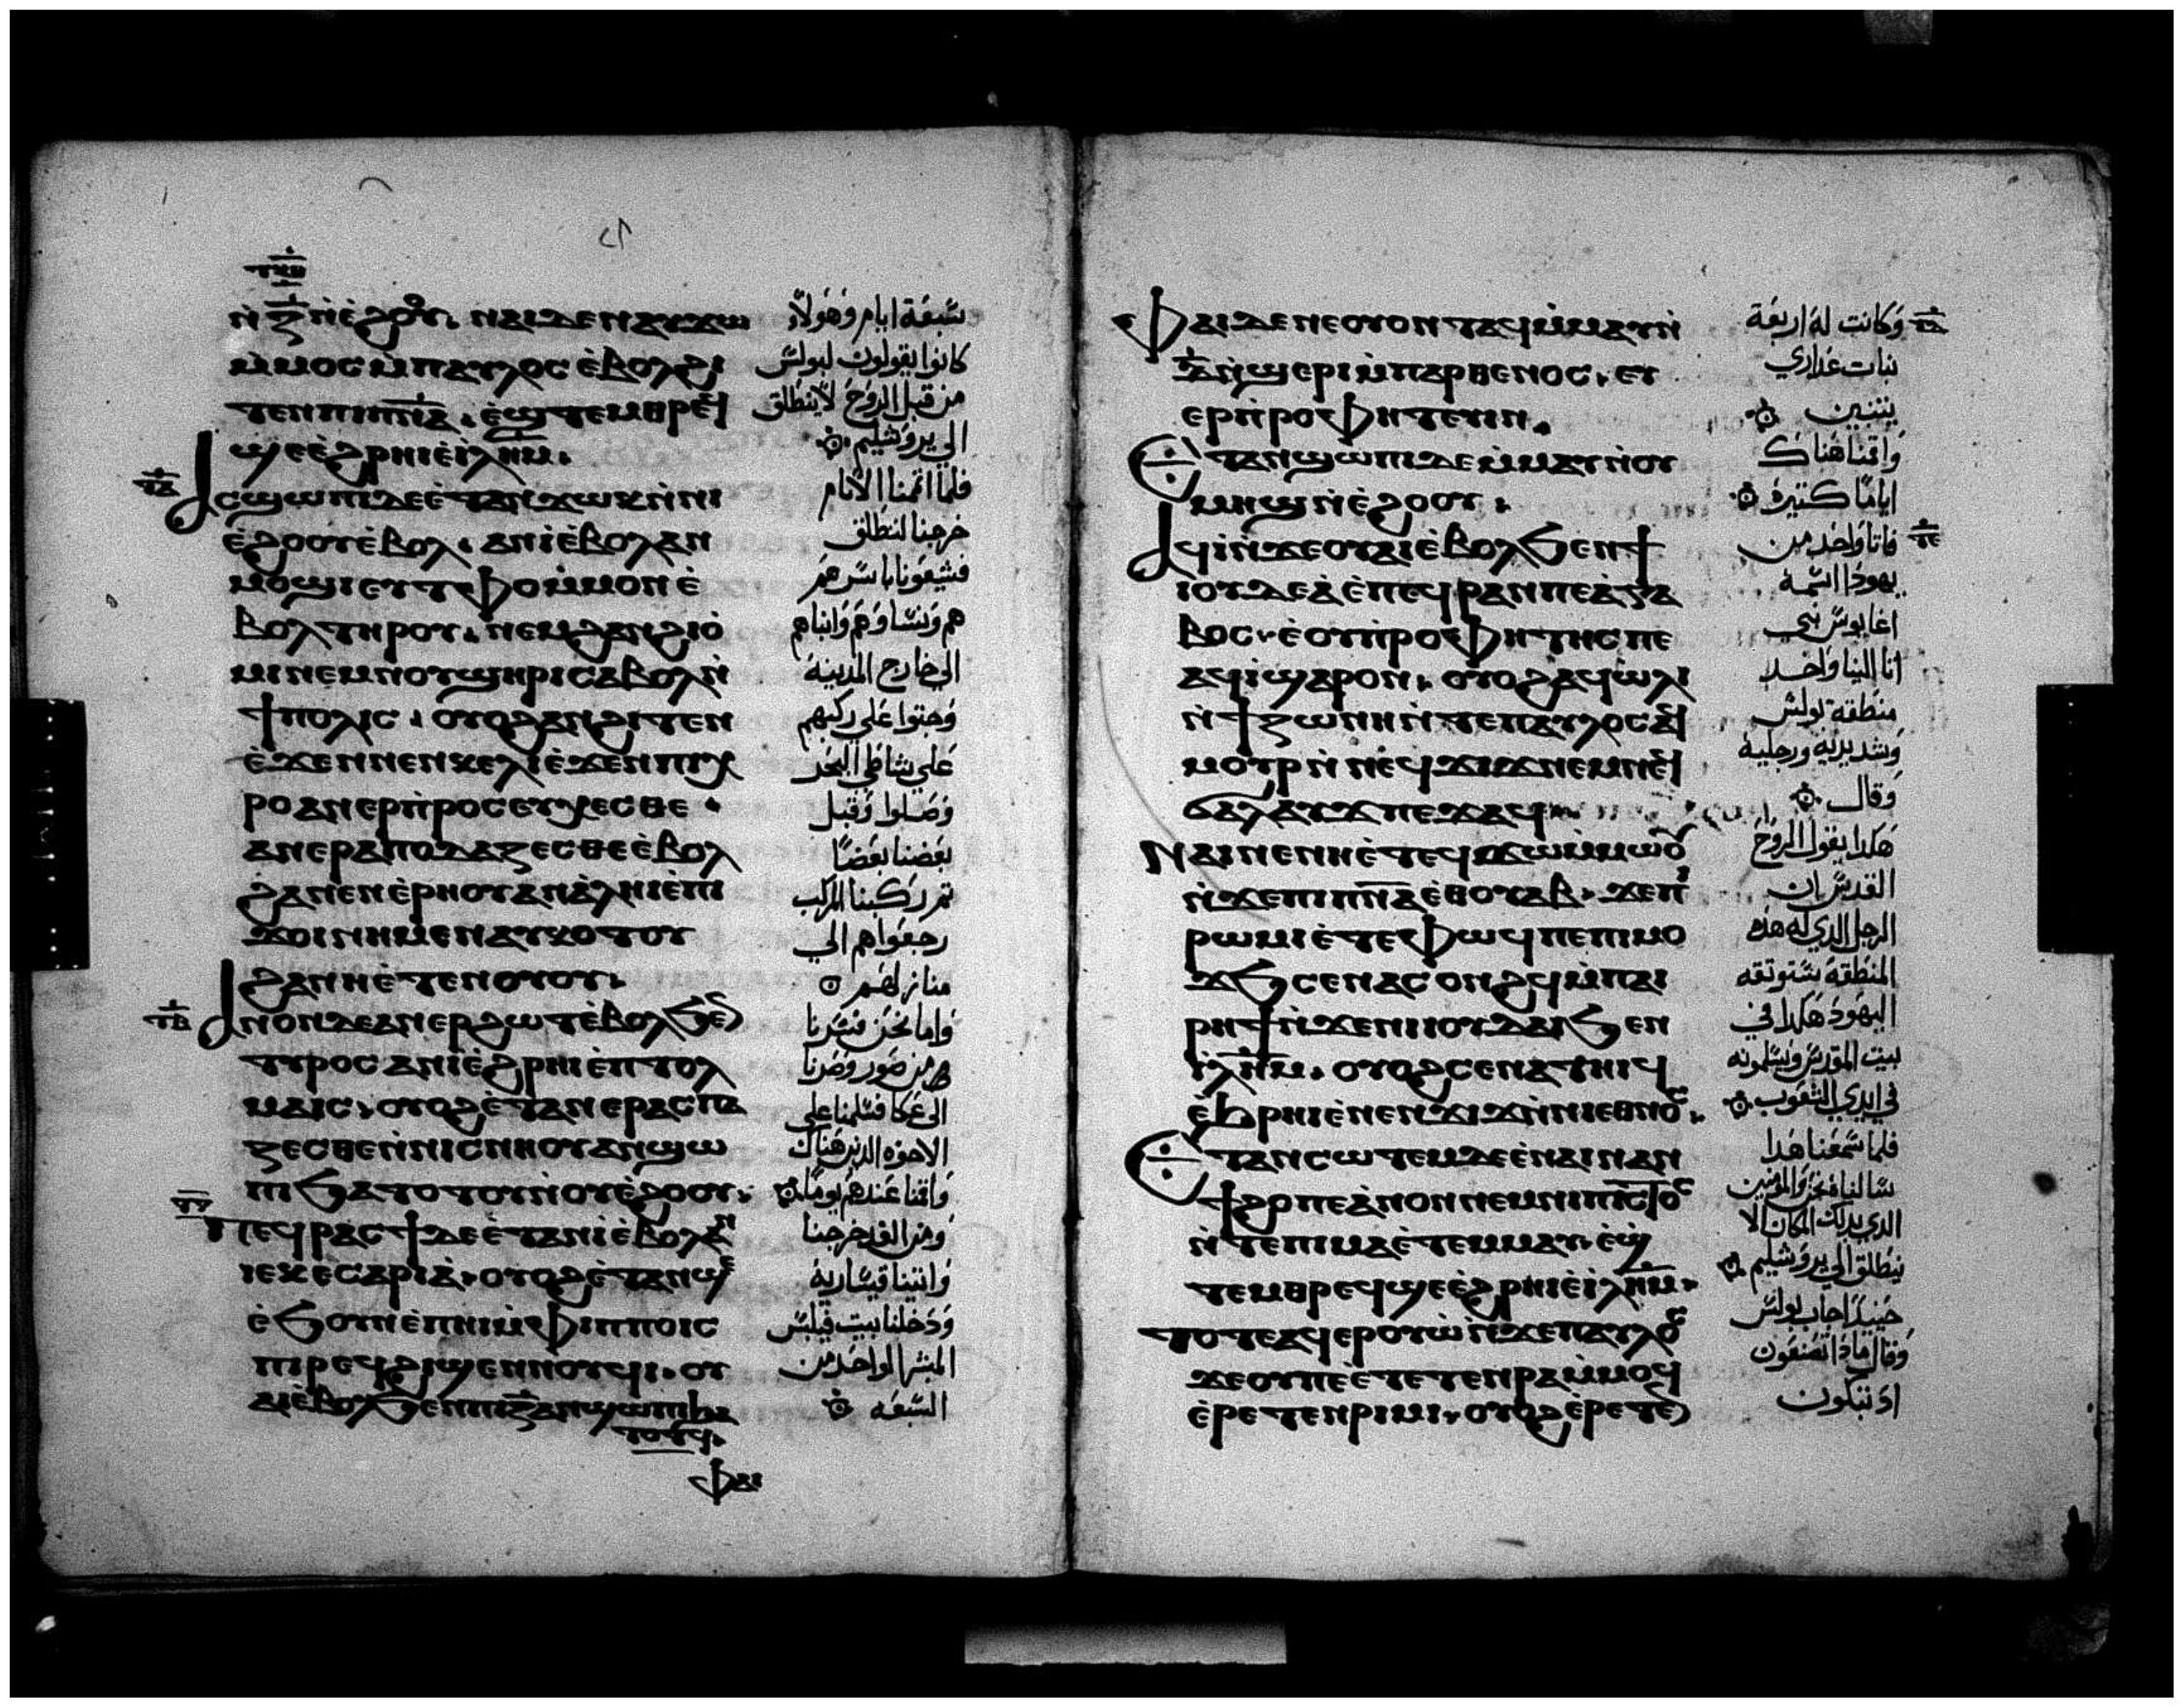 ⲛ̀ⲍ̅ⲛ̀ⲉ̀ϩⲟⲟⲩ. ⲛⲁⲓⲇⲉⲛⲁⲩϫⲱ
ⲙ̀ⲙⲟⲥⲙ̀ⲡⲁⲩⲗⲟⲥⲉ̀ⲃⲟⲗϩⲓ
ⲧⲉⲛⲡⲓⲡ̅ⲛ̅ⲁ̅. ⲉ̀ϣⲧⲉⲙⲑⲣⲉϥ
ϣⲉⲉ̀ϩⲣⲏⲓⲉ̀ⲓ̀ⲗ̅ⲏ̅ⲙ̅.
ⲁⲥϣⲱⲡⲓⲇⲉⲉ̀ⲧⲁⲛϫⲱⲕⲛ̀ⲛⲓ
ⲉ̀ϩⲟⲟⲩⲉ̀ⲃⲟⲗ. ⲁⲛⲓ̀ⲉ̀ⲃⲟⲗⲁⲛ
ⲙⲟϣⲓⲉⲩⲧⲫⲟⲙ̀ⲙⲟⲛⲉ̀
ⲃⲟⲗⲧⲏⲣⲟⲩ. ⲛⲉⲙϩⲁⲛϩⲓⲟ̀
ⲙⲓⲛⲉⲙⲛⲟⲩϣⲏⲣⲓⲥⲁⲃⲟⲗⲛ̀
ϯⲡⲟⲗⲓⲥ. ⲟⲩⲟϩⲁⲛϩⲓⲧⲉⲛ
ⲉ̀ϫⲉⲛⲛⲉⲛⲕⲉⲗⲓⲉ̀ϫⲉⲛⲡⲓⲭ
ⲣⲟⲁⲛⲉⲣⲡ̀ⲣⲟⲥⲉⲩⲭⲉⲥⲑⲉ.
ⲁⲛⲉⲣⲁ̀ⲡⲟⲇⲁⲍⲉⲥⲑⲉⲉ̀ⲃⲟⲗ
ϩⲁⲛⲉⲛⲉ̀ⲣⲏⲟⲩⲁⲛⲁ̀ⲗⲏⲓⲉ̀ⲡⲓ
ϫⲟⲓⲛⲏⲙⲉⲛⲁⲩⲕⲟⲧⲟⲩ
ϩⲁⲛⲏⲉ̀ⲧⲉⲛⲟⲩⲟⲩ.
ⲁⲛⲟⲛⲇⲉⲁⲛⲉⲣϩⲱⲧⲉ̀ⲃⲟⲗϧⲉⲛ
ⲧⲩⲣⲟⲥⲁⲛⲓ̀ⲉ̀ϩⲣⲏⲓⲉ̀ⲡⲧⲟⲗ
ⲙⲁⲓⲥ. ⲟⲩⲟϩⲉ̀ⲧⲁⲛⲉⲣⲁⲥⲡⲁ
ⲍⲉⲥⲑⲉⲛ̀ⲛⲓⲥⲛⲏⲟⲩⲁⲛϣⲱ
ⲡⲓϧⲁⲧⲟⲧⲟⲩⲛ̀ⲟⲩⲉ̀ϩⲟⲟⲩ.
ⲡⲉϥⲣⲁⲥϯⲇⲉⲉ̀ⲧⲁⲛⲓ̀ⲉ̀ⲃⲟⲗⲁⲛ
ⲓ̀ⲉⲕⲉ̀ⲥⲁⲣⲓⲁ̀. ⲟⲩⲟϩⲉ̀ⲧⲁⲛϣⲉ
ⲉ̀ϧⲟⲩⲛⲉ̀ⲡⲏⲓⲙ̀ⲫⲓⲡⲡⲟⲓⲥ
ⲡⲓⲣⲉϥϩⲓϣⲉⲛⲛⲟⲩϥⲓ. ⲟⲩ
ⲁⲓⲉ̀ⲃⲟⲗϧⲉⲛⲡⲓⲍ̅ⲁⲛϣⲱⲡⲓϧⲁ
ⲧⲟⲧϥ.
ⲫⲁⲓ
سبعة ايام وهولاء
كانوا يقولون لبولس
من قبل الروح لا ينطلق
الي يروشليم
فلما اتممنا الايام
خرجنا لننطلق
فشيعونا باسرهم
هم ونساوهم وابناهم
الي خارج المدينة
وجثوا علي ركبهم
علي شاطي البحر
وصلوا وقبل
بعضنا بعضا
ثم ركبنا المركب
رجعوا هم الي
منازلهم
واما نحن فسرنا
من صور وصرنا
الي عكا فسلمنا علي
الاخوه الذين هناك
واقمنا عندهم يوما
ومن الغد خرجنا
واتينا قيسارية
ودخلنا بيت فيلبس
المبشر الواحد من
السبعه
ⲫⲁⲓⲇⲉⲛⲉⲟⲩⲟⲛⲧⲁϥⲙ̀ⲙⲁⲩⲛ̀
ⲇ̅ⲛ̀ϣⲉⲣⲓⲙ̀ⲡⲁⲣⲑⲉⲛⲟⲥ. ⲉⲩ
ⲉⲣⲡ̀ⲣⲟⲫⲏⲧⲉⲩⲓⲛ.
ⲉⲧⲁⲛϣⲱⲡⲓⲇⲉⲙ̀ⲙⲁⲩⲛ̀ⲟⲩ
ⲙⲏϣⲛ̀ⲉ̀ϩⲟⲟⲩ.
ⲁϥⲓ̀ⲛ̀ϫⲉⲟⲩⲁⲓⲉ̀ⲃⲟⲗϧⲉⲛϯ
ⲓⲟⲩⲇⲉⲁ̀ⲉ̀ⲡⲉϥⲣⲁⲛⲡⲉⲁ̀ⲅⲁ
ⲃⲟⲥ. ⲉ̀ⲟⲩⲡ̀ⲣⲟⲫⲏⲧⲏⲥⲡⲉ
ⲁϥⲓ̀ϣⲁⲣⲟⲛ. ⲟⲩⲟϩⲁϥⲱ̀ⲗⲓ
ⲛ̀ϯⲍⲱⲛⲏⲛ̀ⲧⲉⲡⲁⲩⲗⲟⲥⲁϥ
ⲙⲟⲩⲣⲛ̀ⲛⲉϥϫⲓϫⲛⲉⲙⲛⲉϥ
ϭⲁⲗⲁⲩϫⲡⲉϫⲁϥ
ⲛⲁⲓⲛⲉⲛⲏⲉ̀ⲧⲉϥϫⲱⲙ̀ⲙⲱⲟⲩ
ⲛ̀ϫⲉⲡⲓⲡ̅ⲛ̅ⲁ̅ⲉ̀ⲑⲟⲩⲁⲃ. ϫⲉⲡⲓ
ⲣⲱⲙⲓⲉ̀ⲧⲉⲫⲱϥⲡⲉⲡⲓⲙⲟ
ϫϧⲥⲉⲛⲁⲥⲟⲛϩϥⲙ̀ⲡⲁⲓ
ⲣⲏϯⲛ̀ϫⲉⲛⲓⲓⲟⲩⲇⲁⲓϧⲉⲛ
ⲓ̀ⲗ̅ⲏ̅ⲙ̅. ⲟⲩⲟϩⲥⲉⲛⲁⲧⲏⲓϥ
ⲉ̀ϧⲣⲏⲓⲉ̀ⲛⲉⲛϫⲓϫⲛ̀ⲛⲓⲉⲑⲛⲟⲥ.
ⲉⲧⲁⲛⲥⲱⲧⲉⲙⲇⲉⲉ̀ⲛⲁⲓⲛⲁⲛ
ϯϩⲟⲡⲉⲁ̀ⲛⲟⲛⲛⲉⲙⲛⲓⲡⲓⲥⲧⲟⲥ
ⲛ̀ⲧⲉⲡⲓⲙⲁⲉ̀ⲧⲉⲙⲙⲁⲩ. ⲉ̀ϣ
ⲧⲉⲙⲑⲣⲉϥϣⲉⲉ̀ϩⲣⲏⲓⲉ̀ⲓ̀ⲗ̅ⲏ̅ⲙ̅.
ⲧⲟⲧⲉⲁϥⲉⲣⲟⲩⲱ̀ⲛ̀ϫⲉⲡⲁⲩⲗⲟⲥ
ϫⲉⲟⲩⲡⲉⲉ̀ⲧⲉⲧⲉⲛⲣⲁⲙ̀ⲙⲟϥ
ⲉ̀ⲣⲉⲧⲉⲛⲣⲓⲙⲓ. ⲟⲩⲟϩⲉ̀ⲣⲉⲧⲉⲛ
وكانت له اربعة
بنات عذاري
يتنبين
واقمنا هناك
اياما كتيرة
فاتا واحد من
يهودا اسمه
اغابوس نبي
اتا الينا واخد
منطقة بولس
وشد يديه ورجليه
وقال
هكدا يقول الروح
القدس ان
الرجل الدي له هذه
المنطقة ستوتقه
اليهود هكدا في
بيت المقدس ويسلمونه
في ايدي الشعوب
فلما سمعنا هدا
سالناه نحن والمومنين
الدي بدلك المكان الا
ينطلق الي يروشليم
حينيد اجاب بولس
وقال مادا تصنعون
اد تبكون